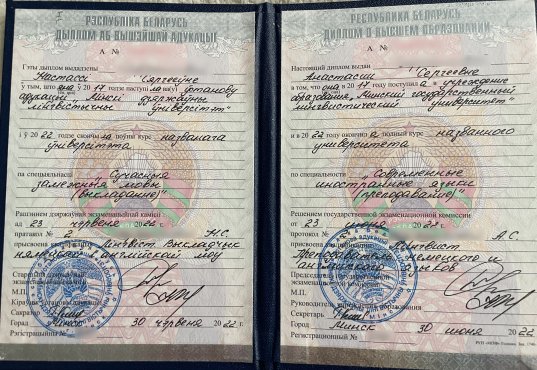 РЭСПУБЛІКА БЕЛАРУСЬ
ДЫПЛОМ АБ ВЫШЭЙШАЙ АДУКАЦЫІ
А №
Гэты дыплом выдадзены
Настассі Сяргееўне
у тым, што яна ў 2017 годзе паступіла ва ўстанову
адукацыі "Мінскі дзяржаўны
лінгвістычны ўніверсітэт"
і ў 2022 годзе скончыла поўны курс названага
ўніверсітэта
па спецыяльнасці "Сучасныя
замежныя мовы
(выкладанне)"
Рашэннем дзяржаўнай экзаменацыйнай камісіі
ад 23 чэрвеня 2022 г.
пратакол № 2 Н.С.
прысвоена кваліфікацыя Лінгвіст. Выкладчык
нямецкай і англійскай моў
Старшыня дзяржаўнай
экзаменацыйнай камісіі
М.П.
Кіраўнік установы адукацыі
Сакратар
Горад Мінск 30 чэрвеня 2022 г.
Рэгістрацыйны №
РЕСПУБЛИКА БЕЛАРУСЬ
ДИПЛОМ О ВЫСШЕМ ОБРАЗОВАНИИ
А №
Настоящий диплом выдан
Анастасии Сергеевне
в том, что она в 2017 году поступила в учреждение
образования "Минский государственный
лингвистический университет"
и в 2022 году окончила полный курс названного
университета
по специальности "Современные
иностранные языки
(преподавание)"
Решением государственной экзаменационной комиссии
от 23 2022 г.
протокол № А.С.
присвоена квалификация Лингвист.
Преподаватель немецкого и
английского языков
Председатель государственной
экзаменационной комиссии
М.П.
Руководитель учреждения образования
Секретарь
Город Минск 30 июня 2022 г.
Регистрационный №